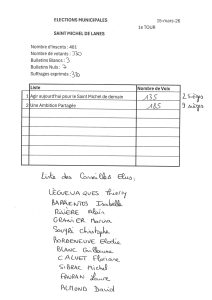 ELECTIONS MUNICIPALES 15-mars-26
1e TOUR
SAINT MICHEL DE LANES
Nombre d'inscrits : 401
Nombre de votants : 330
Bulletins Blancs : 3
Bulletins Nuls : 7
Suffrages exprimés : 320
Liste Nombre de Voix
1 Agir aujourd'hui pour le Saint Michel de demain 135 2 sièges
2 Une Ambition Partagée 185 9 sièges
Liste des Conseillés Elus,
LEGUEVAQUES Thierry
BARRIENTOS Isabelle
RIVIÈRE Alain
GRANIER
SOUYRI Christophe
BORDENEUVE Elodie
BLANC Guillaume
CALVET Floriane
SIBRAC Michel
FAURAN Laure
ALMOND David